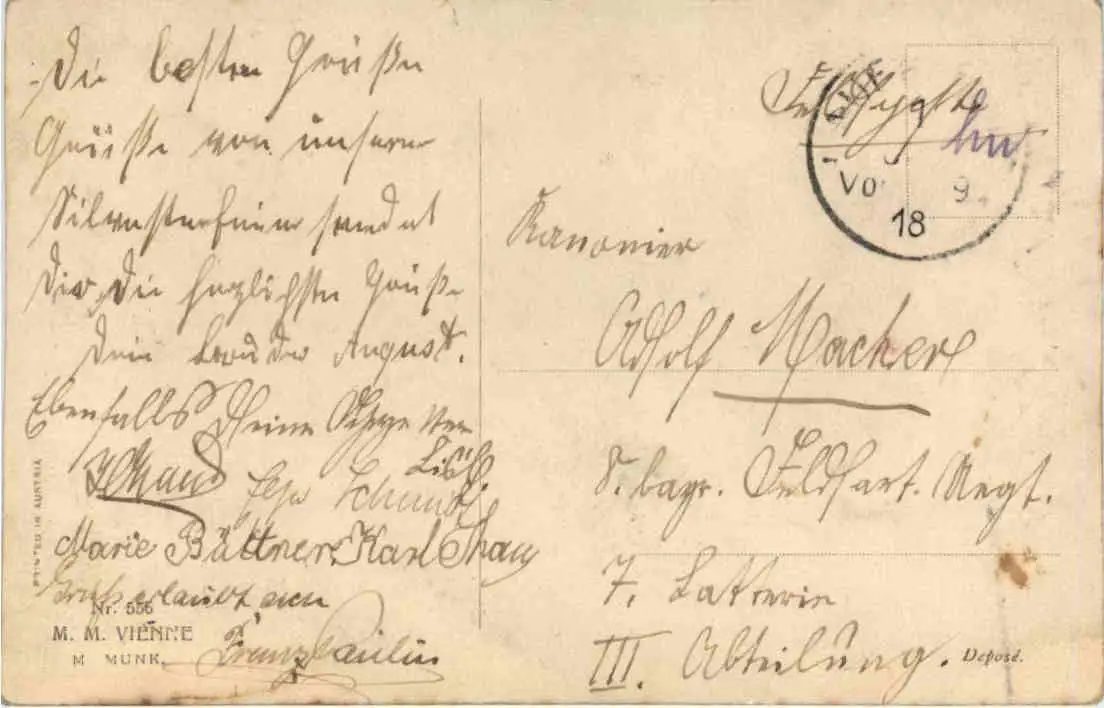 Die besten Grüße
Grüße von unserer
Silvesterfeier sendet
Dir, die herzlichste Grüße
Dein Bruder August.
Ebenfalls Deine
Marie Büttner, Karl Thau
Gruß erlaubt sich
Franz Paulus
PRINTED IN AUSTRIA
Nr. 556
M. M. VIENNE
M. MUNK.
Feldpost
18
9
Kanonier
Adolf Macker
8. bayr. Feldart. Regt.
7. Batterie
III. Abteilung.
Deposé.